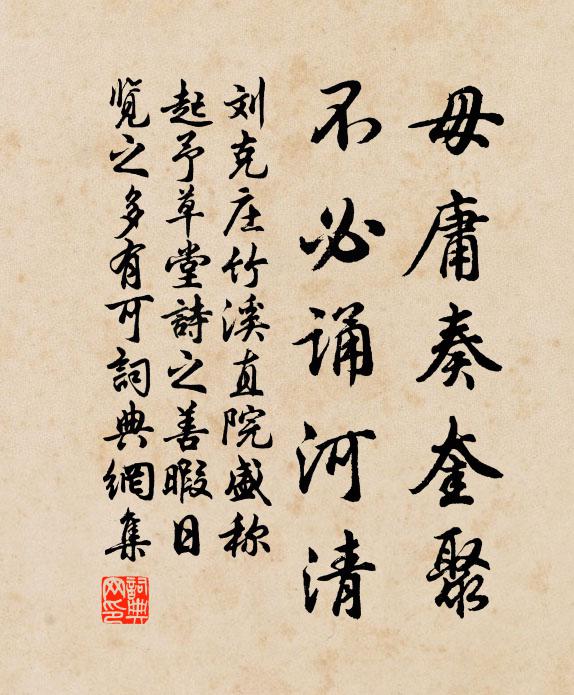 毋庸奏奎聚
不必诵河清
刘克庄竹溪直院盛称
起予草堂詩之善暇日
览之多有可詞典網集
詞典网印